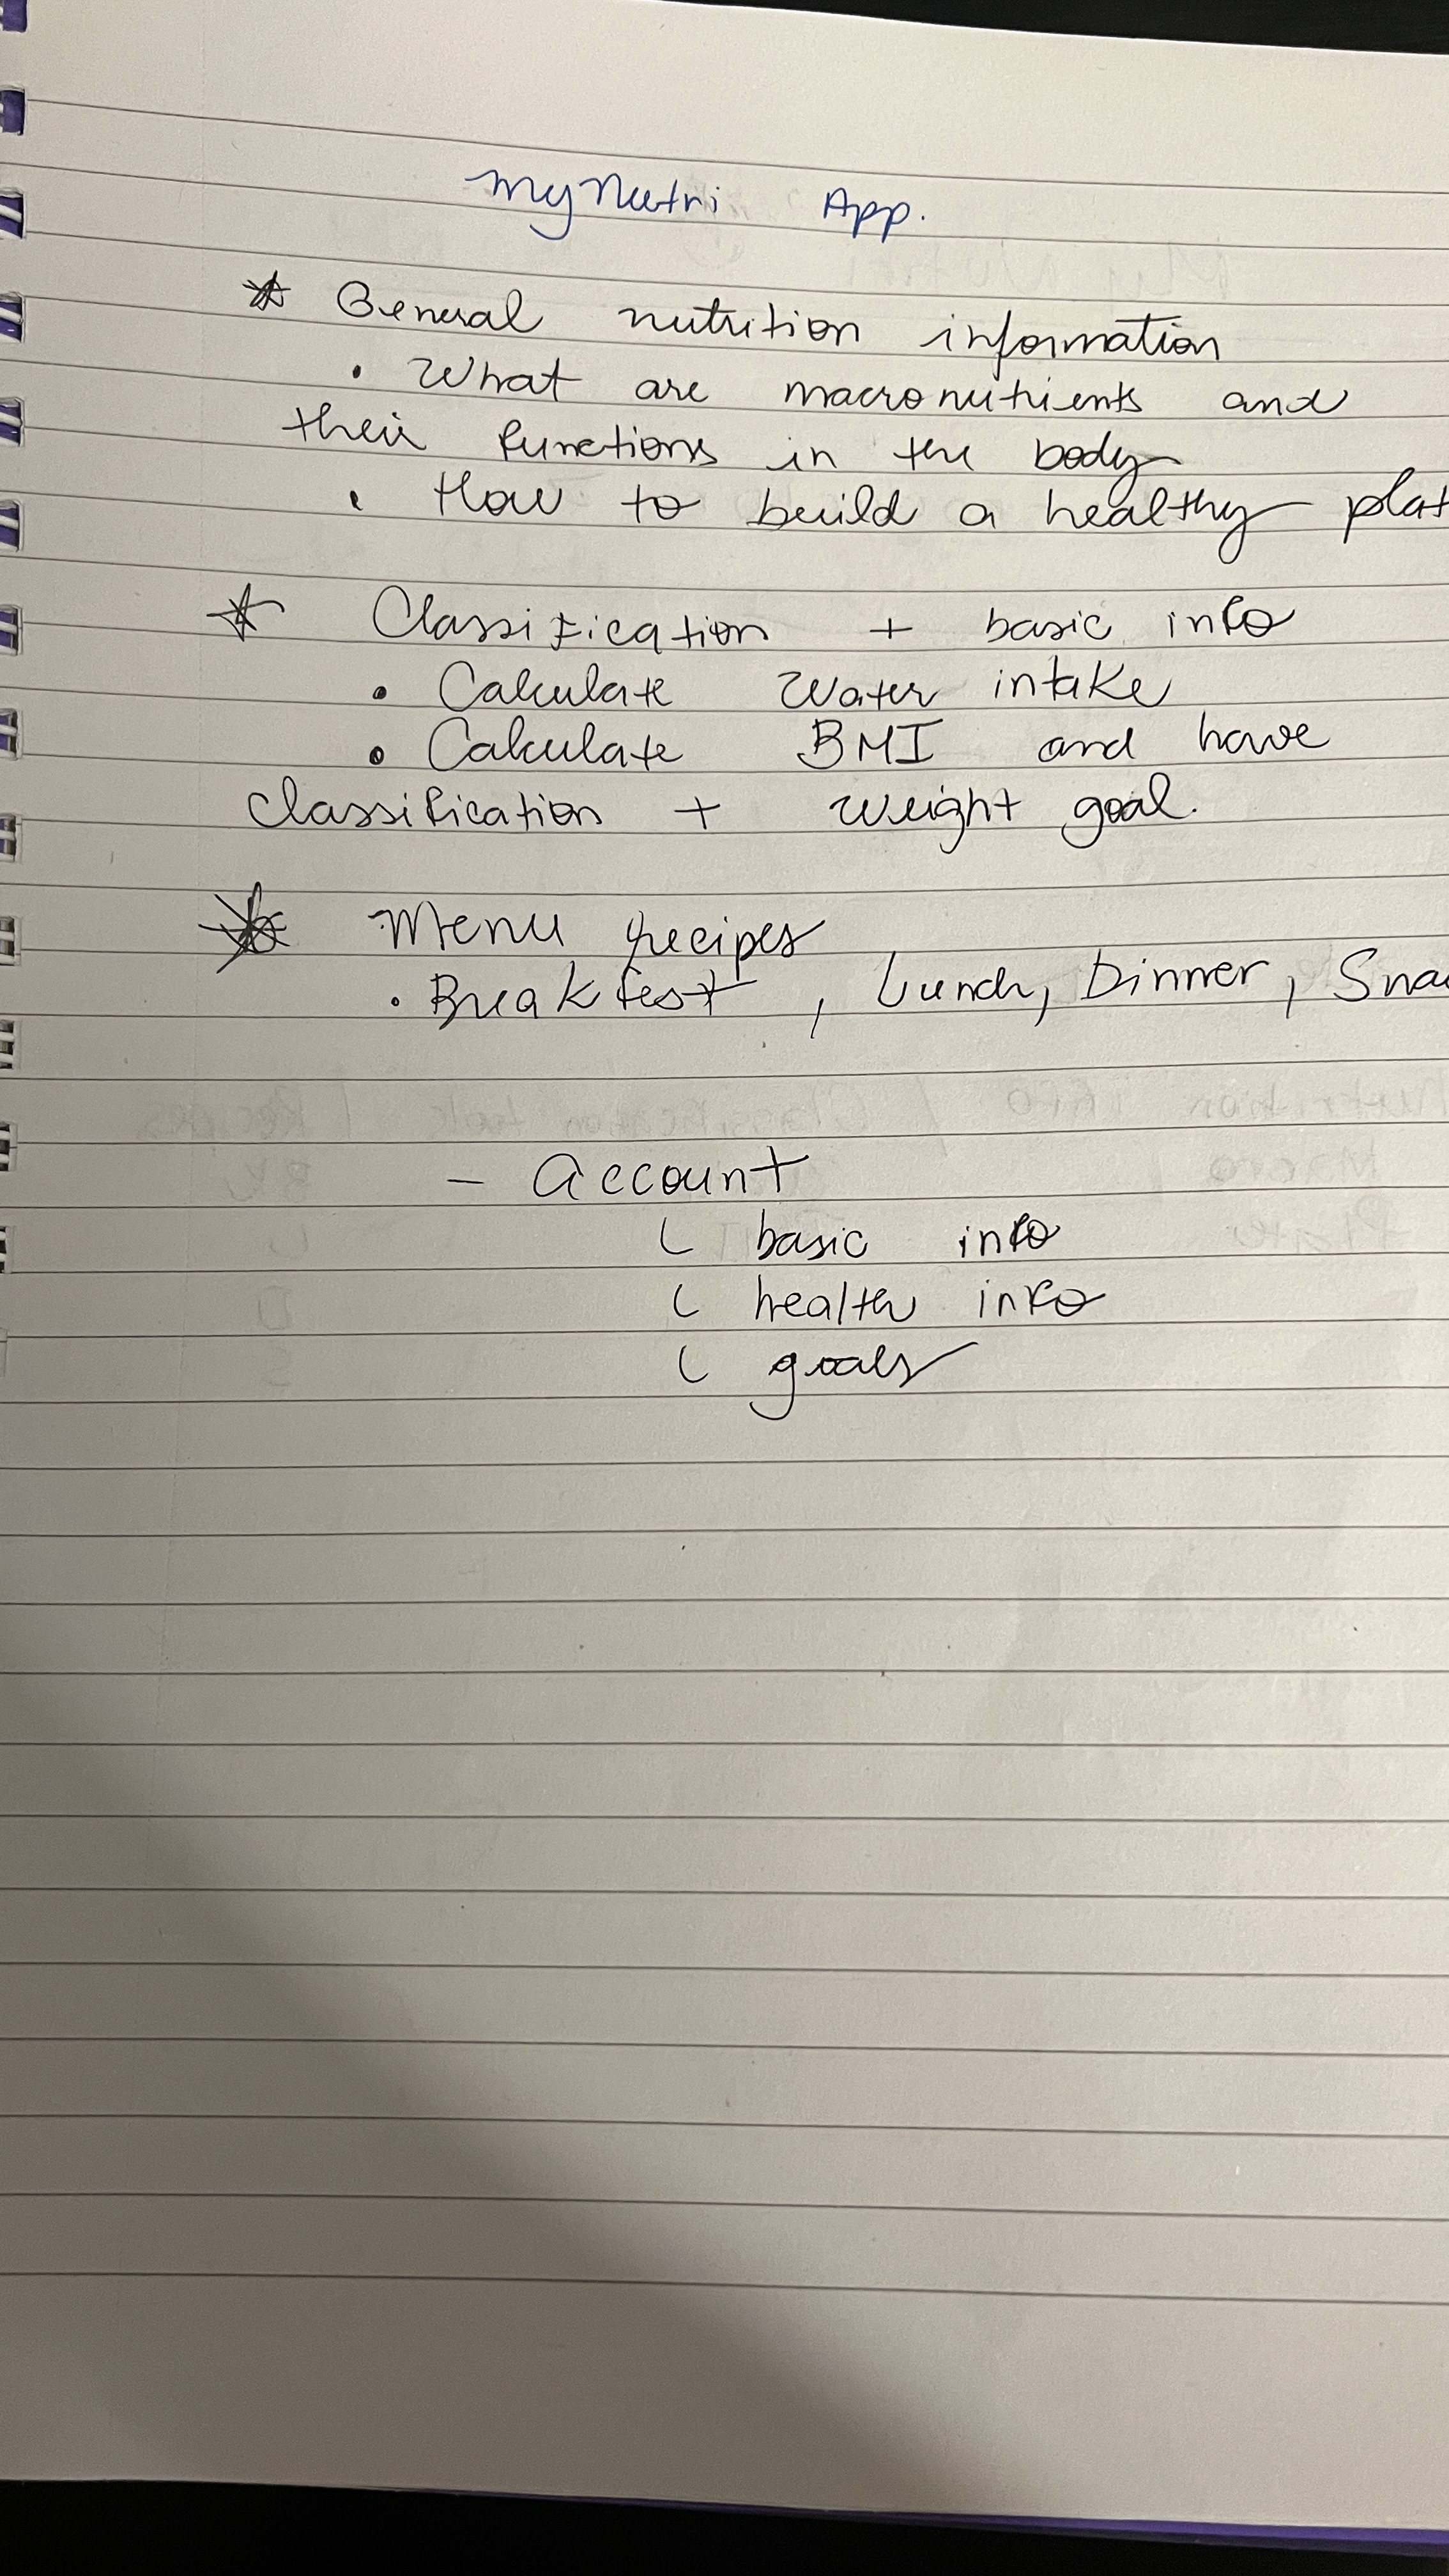 MyNutri App.
* General nutrition information
• What are macronutrients and
their functions in the body
• How to build a healthy plat
* Classification + basic info
• Calculate Water intake
• Calculate BMI and have
classification + weight goal.
* Menu recipes
• Breakfest, Lunch, Dinner, Sna
- Account
basic info
health info
goals